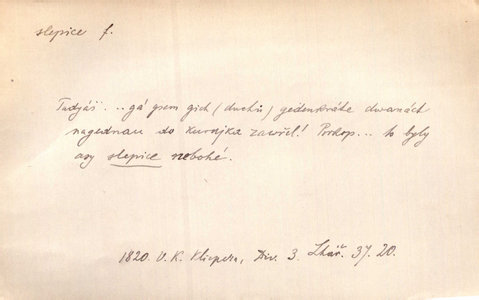 slepice f.
Tadyáš ... gá gsem gich (duchů) gedenkráte dwanáct
nagednau do kurnjka zawřel! Prokop ... to byly
asy slepice nebohé.
1820. V. K. Klicpera, Div. 3. Lhář. 37. 20.